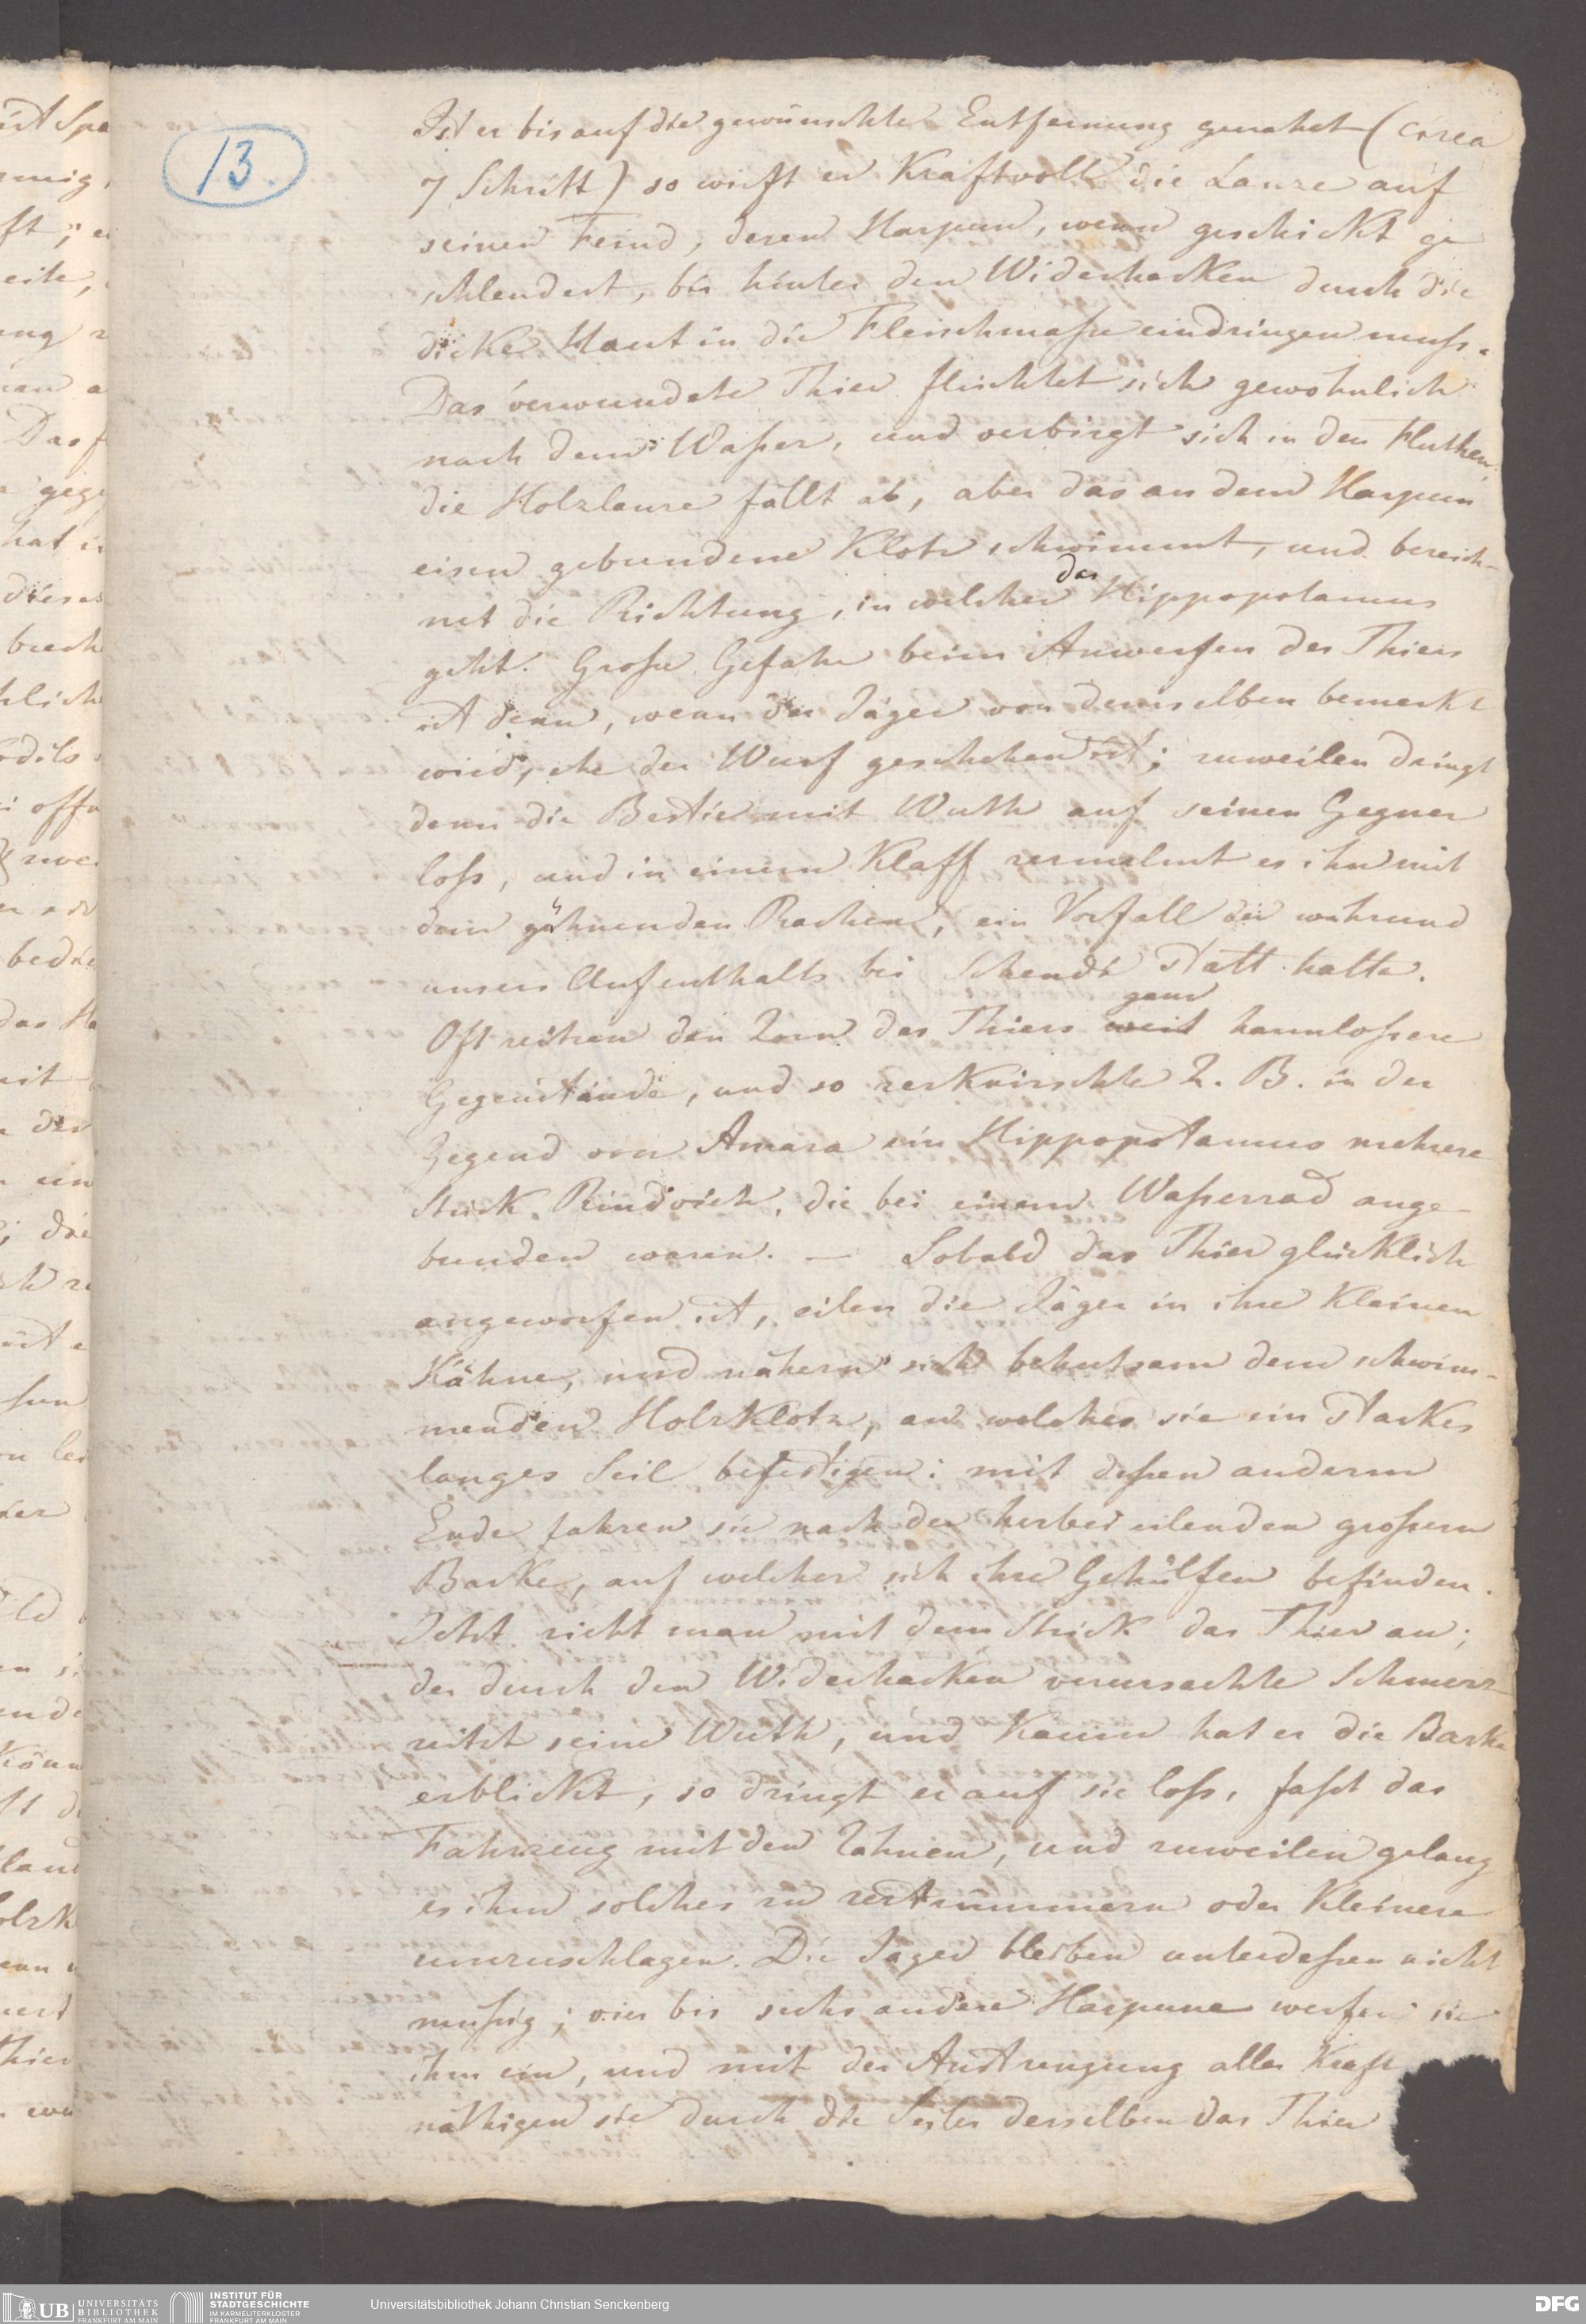 13.
Ist er bis auf die gewünschte Entfernung genahet (circa
7 Schritt) so wirft er Kraftvoll die Lanze auf
seinen Feind, deren Harpun, wenn geschickt ge
schleudert, bis hinter den Widerhacken durch die
dicke Haut in die Fleischmaße eindringen muß.
Das verwundete Thier fluchtet sich gewohnlich
nach dem Waßer, und verbirgt sich in den Fluthen,
die Holzlanze fällt ab, aber das an dem Harpun
eisen gebundene Klotz schwimmt, und bezeich-
net die Richtung, in welcher das Hippopotamus
geht. Große Gefahr beim Anwerfen des Thiers
ist denn, wenn der Jäger von demselben bemerkt
wird, ehe der Wurf geschehen ist; zuweilen dringt
denn die Bestie mit Wuth auf seinen Gegner
loß, und in einem Klaff zermalmt es ihn mit
dem gähnenden Rachen, ein Vorfall der während
unsers Aufenthalts bei Schendi statt hatte.
Oft reitzen den Zorn des Thiers weit ganz harmloßere
Gegenstände, und so zerknirschte Z. B. in der
Gegend von Amara ein Hippopotamus mehrere
Stück Rindvieh, die bei einem Waßerrad ange-
bunden waren. — Sobald das Thier glücklich
angeworfen ist, eilen die Jäger in ihre Kleinen
Kähne, und nähern sich behutsam dem schwim-
menden HolzKlotz, an welches sie ein starkes
langes Seil befestigen: mit deßen anderm
Ende fahren sie nach der herbei eilenden großern
Barke, auf welcher sich ihre Gehülfen befinden.
Jetzt zieht man mit dem Strick das Thier an;
der durch den Widerhacken verursachte Schmerz
reitzt seine Wuth, und Kaum hat er die Barke
erblickt, so dringt er auf sie loß, faßt das
Fahrzeug mit den Zahnen, und zuweilen gelang
es ihm solches zu zertrümmern oder Kleinere
umzuschlagen. Die Jäger bleiben unterdeßen nicht
mußig; vier bis sechs andere Harpune werfen sie
ihm ein, und mit der Anstrengung aller Kraft
nöthigen sie durch die Seiler derselben das Thier
UB UNIVERSITÄTS
BIBLIOTHEK
FRANKFURT AM MAIN
INSTITUT FÜR
STADTGESCHICHTE
IM KARMELITERKLOSTER
FRANKFURT AM MAIN
Universitätsbibliothek Johann Christian Senckenberg
DFG